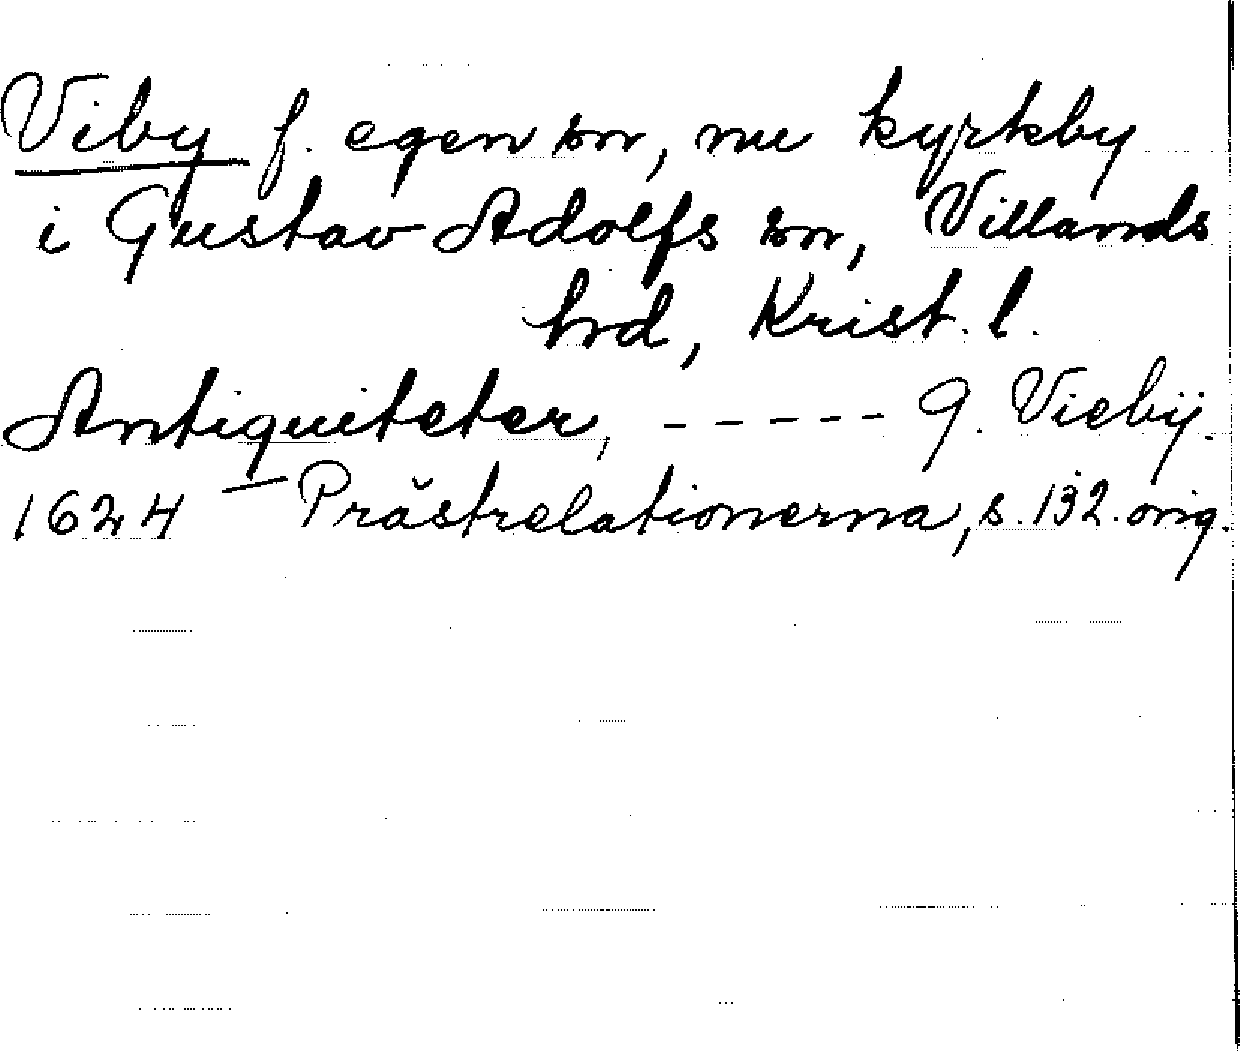 Viby f. egen sn, nu kyrkby
i Gustav Adolfs sn, Villands
hrd, Krist. l.
Antiquiteter, ----- 9. Viebij.
1624 — Prästrelationerna, s. 132. orig.